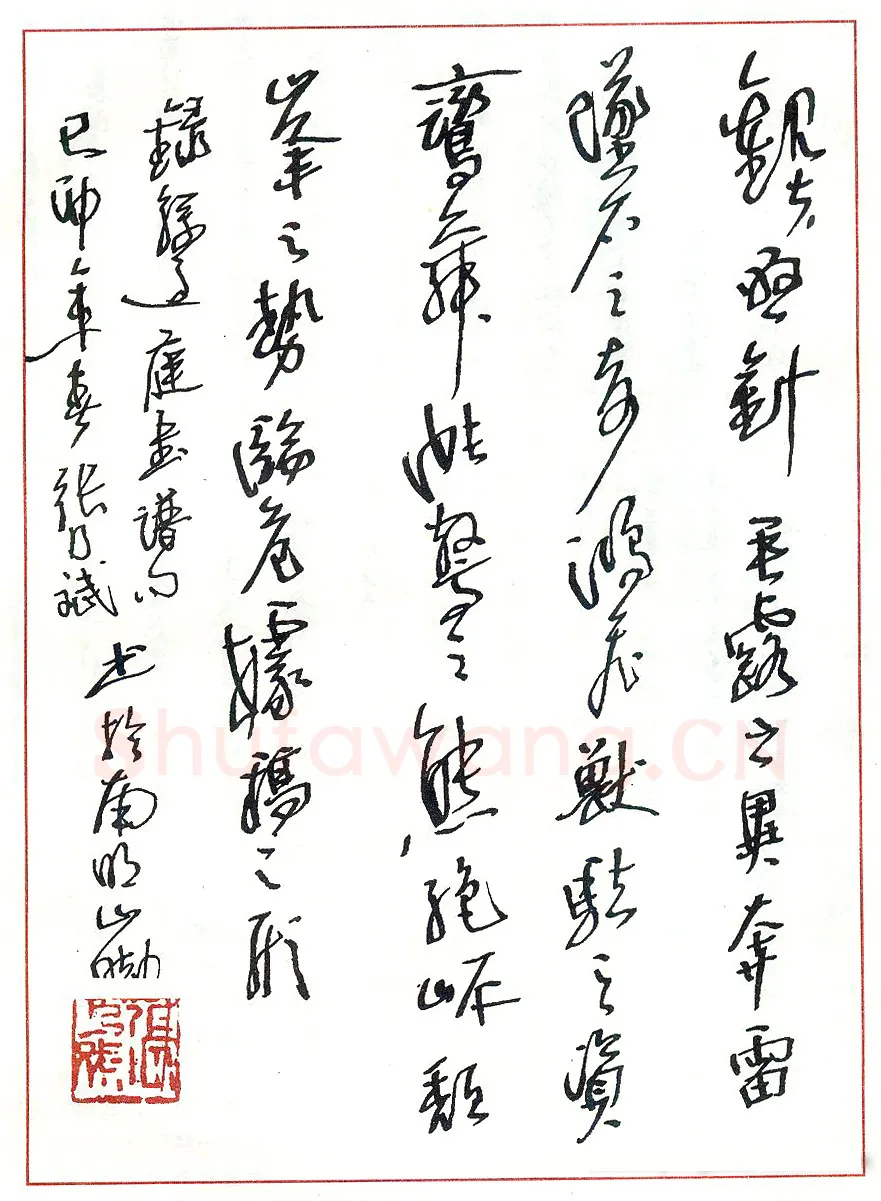 觀夫懸針垂露之異奔雷
墜石之奇鴻飛獸駭之資
鸞舞蛇驚之態絕岸頹
峯之勢臨危據槁之形
錄孫過庭書譜句
己卯年春張乃斌
书於南明山坳
Shufawang.CN